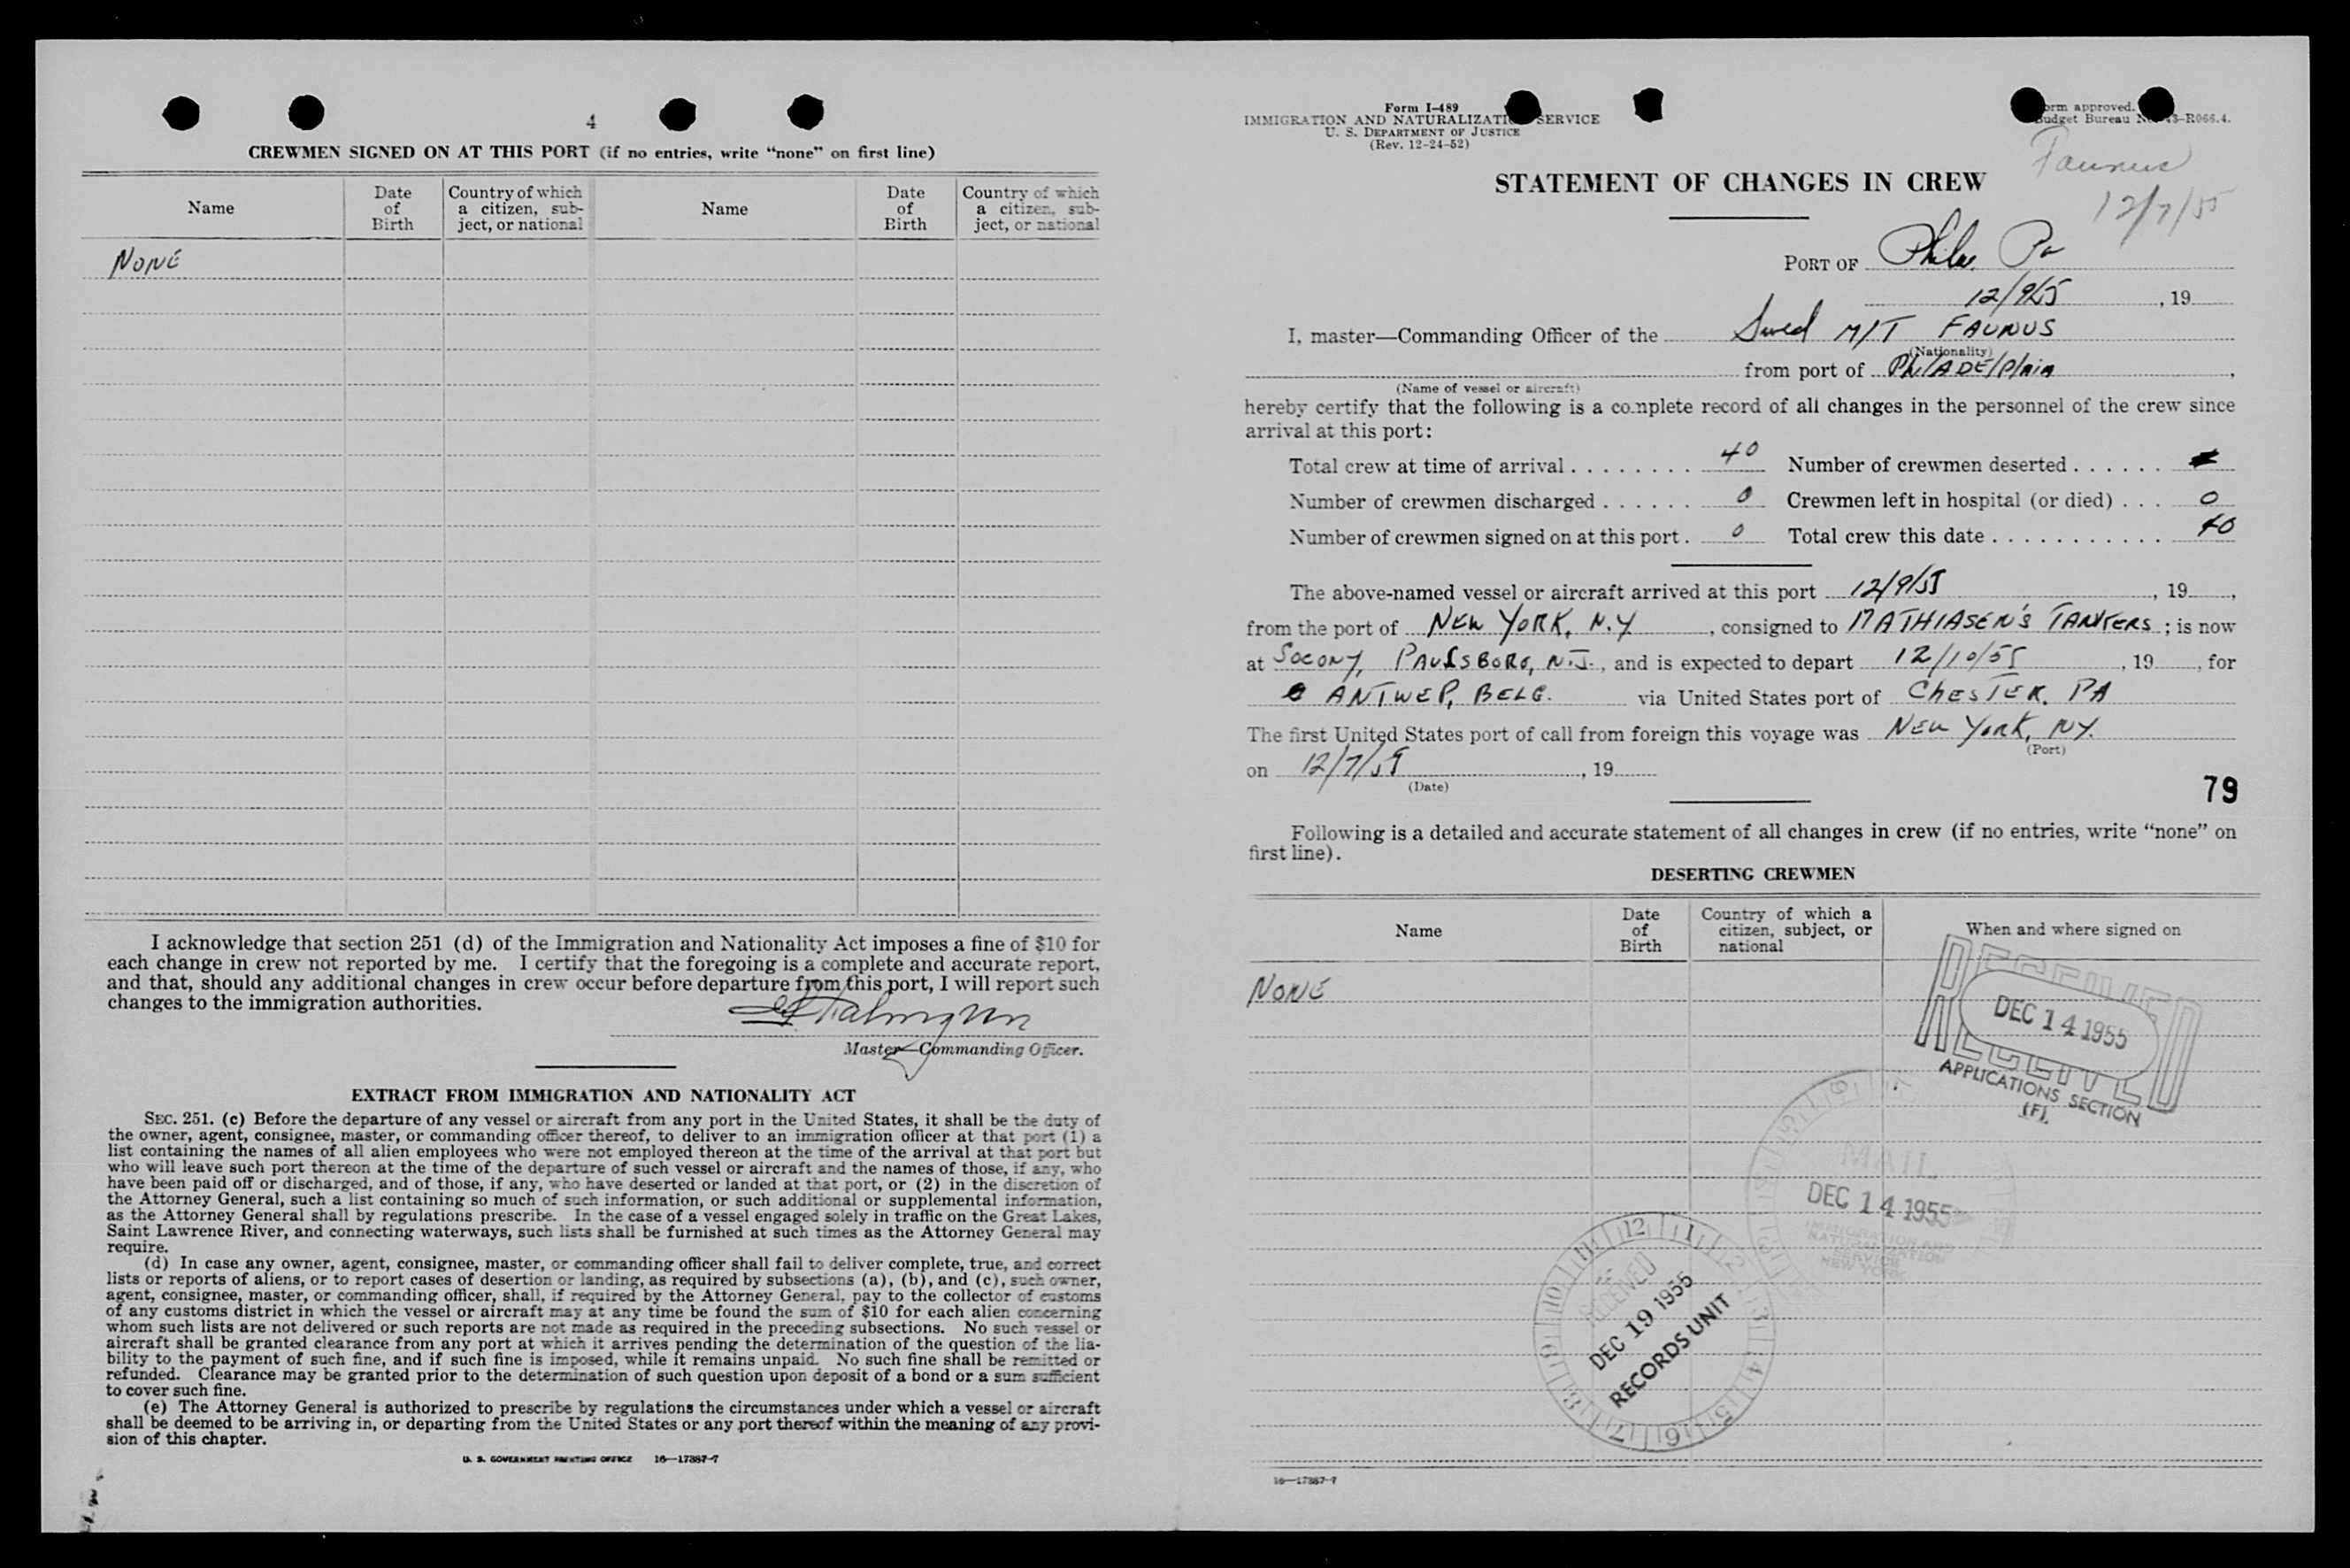 4
CREWMEN SIGNED ON AT THIS PORT (if no entries, write “none” on first line)
Name
Date of Birth
Country of which a citizen, subject, or national
Name
Date of Birth
Country of which a citizen, subject, or national
NONE
I acknowledge that section 251 (d) of the Immigration and Nationality Act imposes a fine of $10 for
each change in crew not reported by me. I certify that the foregoing is a complete and accurate report,
and that, should any additional changes in crew occur before departure from this port, I will report such
changes to the immigration authorities.
Master—Commanding Officer.
EXTRACT FROM IMMIGRATION AND NATIONALITY ACT
SEC. 251. (c) Before the departure of any vessel or aircraft from any port in the United States, it shall be the duty of
the owner, agent, consignee, master, or commanding officer thereof, to deliver to an immigration officer at that port (1) a
list containing the names of all alien employees who were not employed thereon at the time of the arrival at that port but
who will leave such port thereon at the time of the departure of such vessel or aircraft and the names of those, if any, who
have been paid off or discharged, and of those, if any, who have deserted or landed at that port, or (2) in the discretion of
the Attorney General, such a list containing so much of such information, or such additional or supplemental information,
as the Attorney General shall by regulations prescribe. In the case of a vessel engaged solely in traffic on the Great Lakes,
Saint Lawrence River, and connecting waterways, such lists shall be furnished at such times as the Attorney General may
require.
(d) In case any owner, agent, consignee, master, or commanding officer shall fail to deliver complete, true, and correct
lists or reports of aliens, or to report cases of desertion or landing, as required by subsections (a), (b), and (c), such owner,
agent, consignee, master, or commanding officer, shall, if required by the Attorney General, pay to the collector of customs
of any customs district in which the vessel or aircraft may at any time be found the sum of $10 for each alien concerning
whom such lists are not delivered or such reports are not made as required in the preceding subsections. No such vessel or
aircraft shall be granted clearance from any port at which it arrives pending the determination of the question of the lia-
bility to the payment of such fine, and if such fine is imposed, while it remains unpaid. No such fine shall be remitted or
refunded. Clearance may be granted prior to the determination of such question upon deposit of a bond or a sum sufficient
to cover such fine.
(e) The Attorney General is authorized to prescribe by regulations the circumstances under which a vessel or aircraft
shall be deemed to be arriving in, or departing from the United States or any port thereof within the meaning of any provi-
sion of this chapter.
U. S. GOVERNMENT PRINTING OFFICE 16—17387-7
Form I-489
IMMIGRATION AND NATURALIZATION SERVICE
U. S. DEPARTMENT OF JUSTICE
(Rev. 12-24-52)
Form approved.
Budget Bureau No. 43-R066.4.
Faunus
12/7/55
STATEMENT OF CHANGES IN CREW
PORT OF Phila. Pa
12/9/55, 19
I, master—Commanding Officer of the Swed M/T FAUNUS
(Nationality)
from port of PhilADElPhia,
(Name of vessel or aircraft)
hereby certify that the following is a complete record of all changes in the personnel of the crew since
arrival at this port:
Total crew at time of arrival 40 Number of crewmen deserted
Number of crewmen discharged 0 Crewmen left in hospital (or died) 0
Number of crewmen signed on at this port 0 Total crew this date 40
The above-named vessel or aircraft arrived at this port 12/9/55, 19,
from the port of NEW YORK, N.Y, consigned to MATHIASEN'S TANKERS; is now
at SOCONY, PAULSBORO, N.J., and is expected to depart 12/10/55, 19, for
ANTWEP, BELG. via United States port of CHESTER, PA
The first United States port of call from foreign this voyage was NEW YORK, NY.
(Port)
on 12/7/55, 19
(Date)
79
Following is a detailed and accurate statement of all changes in crew (if no entries, write “none” on
first line).
DESERTING CREWMEN
Name
Date of Birth
Country of which a citizen, subject, or national
When and where signed on
NONE
RECEIVED
DEC 14 1955
RECEIVED
APPLICATIONS SECTION
(F)
MAIL
DEC 14 1955
IMMIGRATION AND
NATURALIZATION
SERVICE
NEW YORK
12 1 2 3 4 5 6 7 8 9 10 11
RECEIVED
DEC 19 1955
RECORDS UNIT
16—17387-7